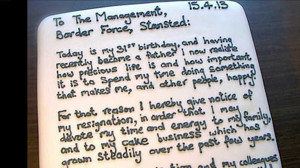 To The Management, 15.4.13
Border Force, Stansted;
Today is my 31st birthday, and having
recently become a father I now realise
how precious life is and how important
it is to spend my time doing something
that makes me, and other people, happy.
For that reason I hereby give notice of
my resignation, in order that I may
devote my time and energy to my family,
and to my cake business which has
grown steadily over the past few years.
colleagues